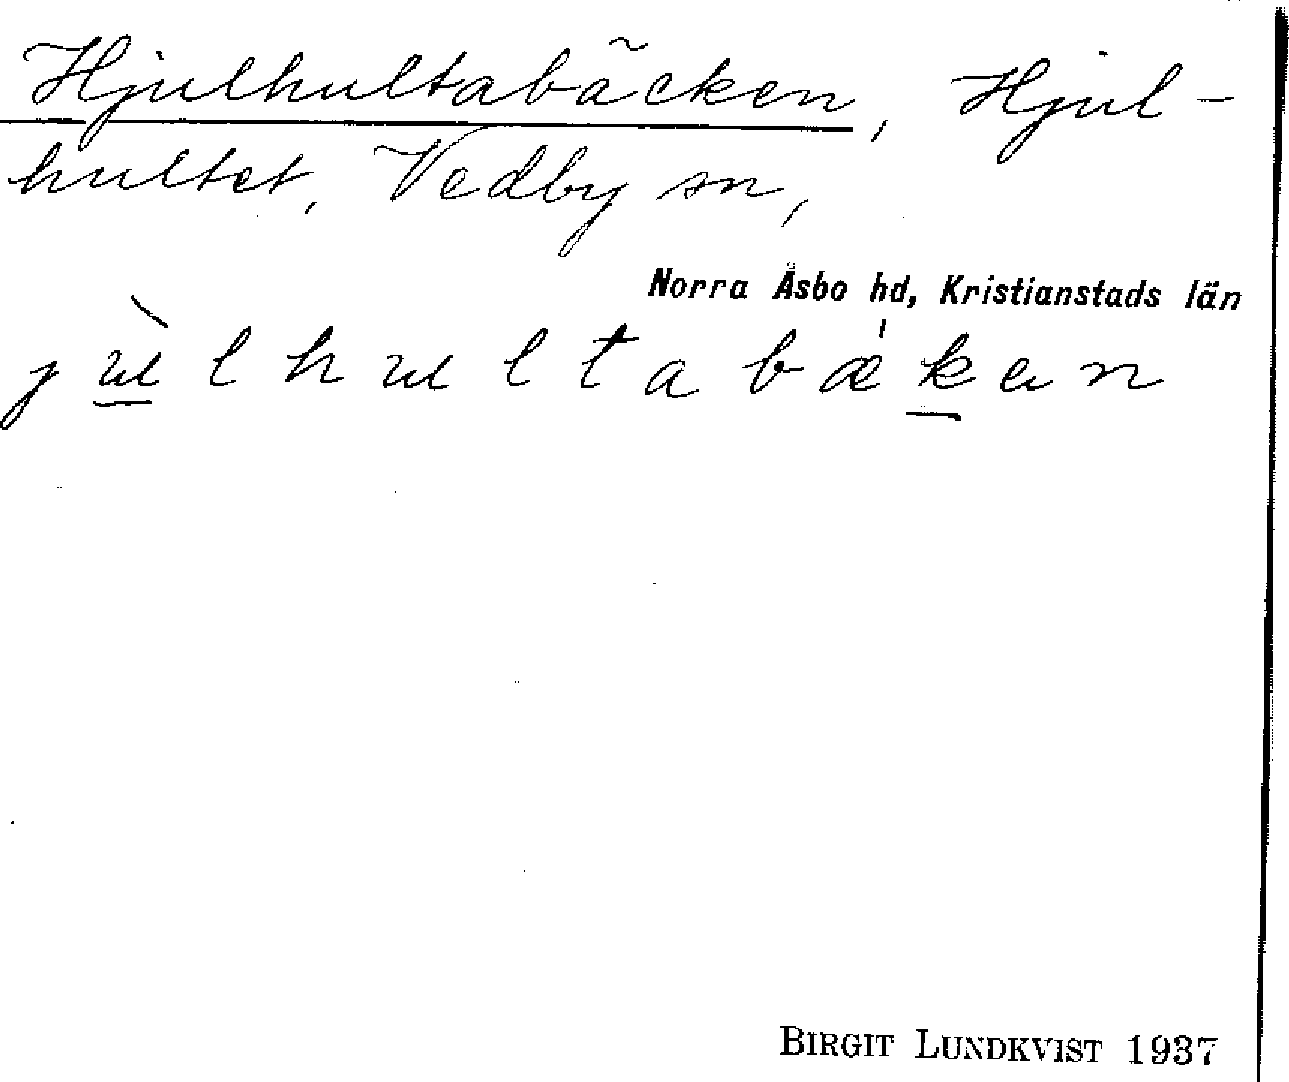 Hjulhultabäcken, Hjul-
hultet, Vedby sn,
Norra Åsbo hd, Kristianstads län
jùlhultabǽken
BIRGIT LUNDKVIST 1937